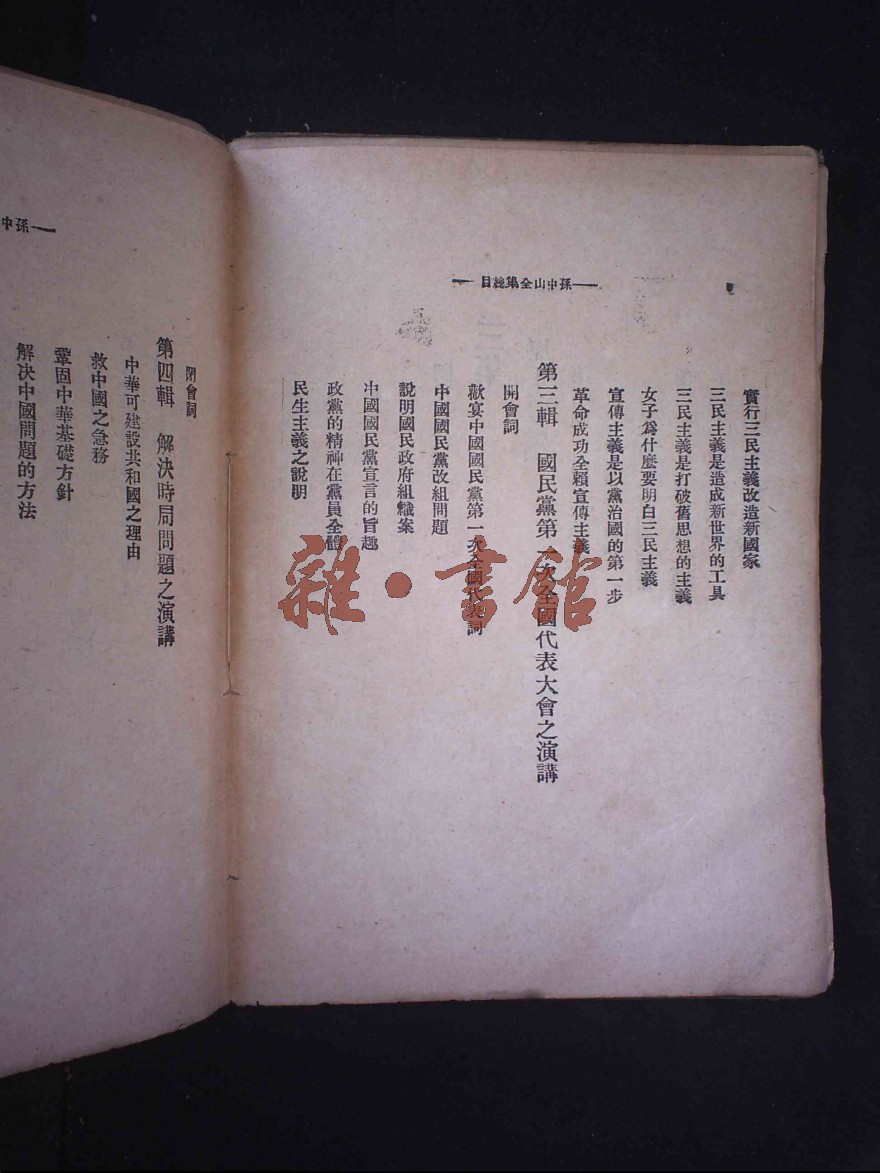 孫中山全集總目
實行三民主義改造新國家
三民主義是造成新世界的工具
三民主義是打破舊思想的主義
女子爲什麼要明白三民主義
宣傳主義是以黨治國的第一步
革命成功全賴宣傳主義
第三輯 國民黨第一次全國代表大會之演講
開會詞
歡宴中國國民黨第一次全國代表詞
中國國民黨改組問題
說明國民政府組織案
中國國民黨宣言的旨趣
政黨的精神在黨員全體
民生主義之說明
孫中
閉會詞
第四輯 解決時局問題之演講
中華可建設共和國之理由
救中國之急務
鞏固中華基礎方針
解決中國問題的方法
雜·書館